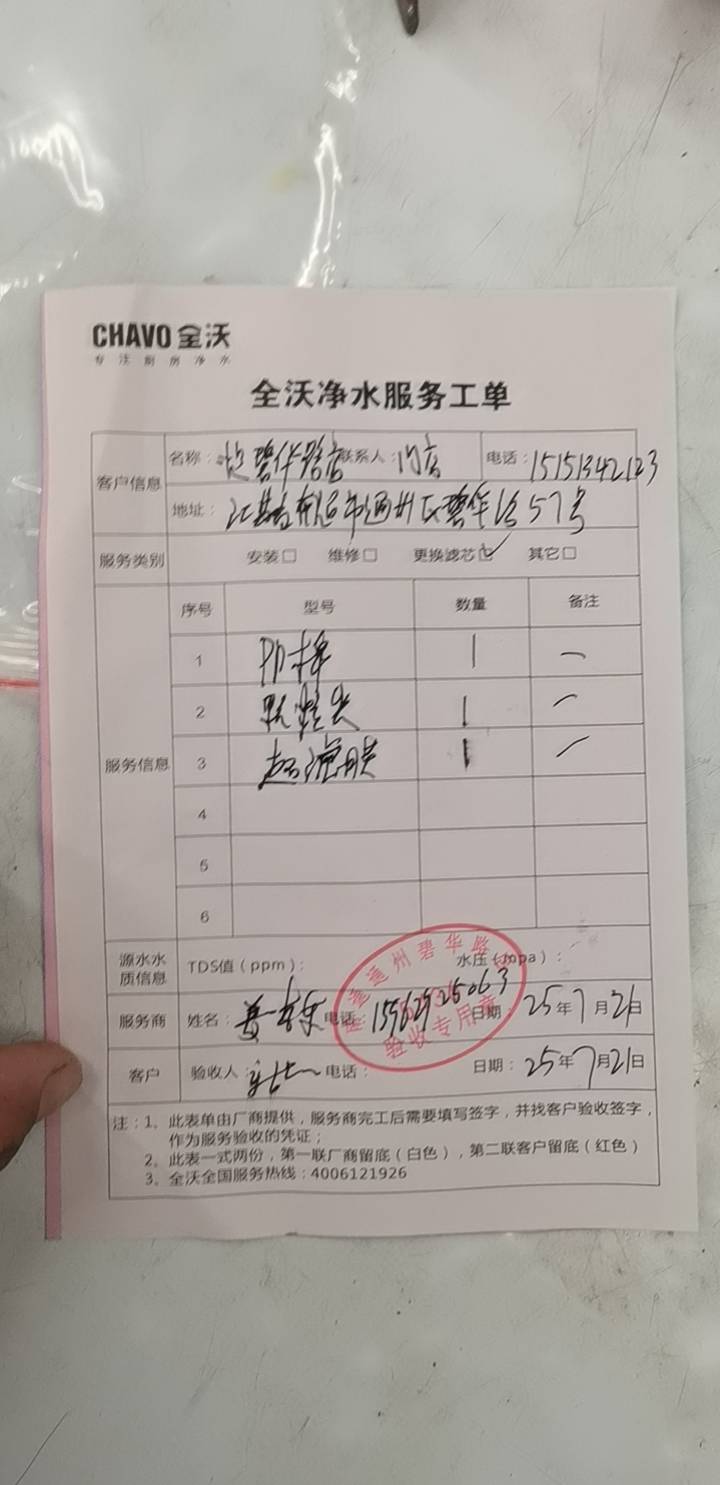 CHAVO 全沃
专注厨房净水
全沃净水服务工单
客户信息 名称： 碧华路店 联系人：门店 电话：15151342123
地址：江苏省南通市通州区碧华路57号
服务类别 安装□ 维修□ 更换滤芯☑ 其它□
序号 型号 数量 备注
服务信息
1 PP棉 1 —
2 颗粒炭 1 —
3 超滤膜 1 —
4
5
6
源水水质信息 TDS值（ppm）： 水压（mpa）：
服务商 姓名： 电话：15962925063 日期：25年7月21日
通州碧华路
验收专用章
客户 验收人： 电话： 日期：25年7月21日
注：1、此表单由厂商提供，服务商完工后需要填写签字，并找客户验收签字，
作为服务验收的凭证；
2、此表一式两份，第一联厂商留底（白色），第二联客户留底（红色）
3、全沃全国服务热线：4006121926